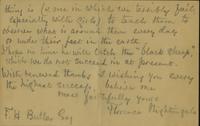 thing is (& one in which we terribly fail
especially with girls) to teach them to
observe what is around them every day
or under their feet in the earth.
I hope in time we will catch the "black sheep",
which we do not succeed in at present.
With renewed thanks & wishing you every
the highest success, believe me
most faithfully yours
Florence Nightingale
F. H. Butler Esq